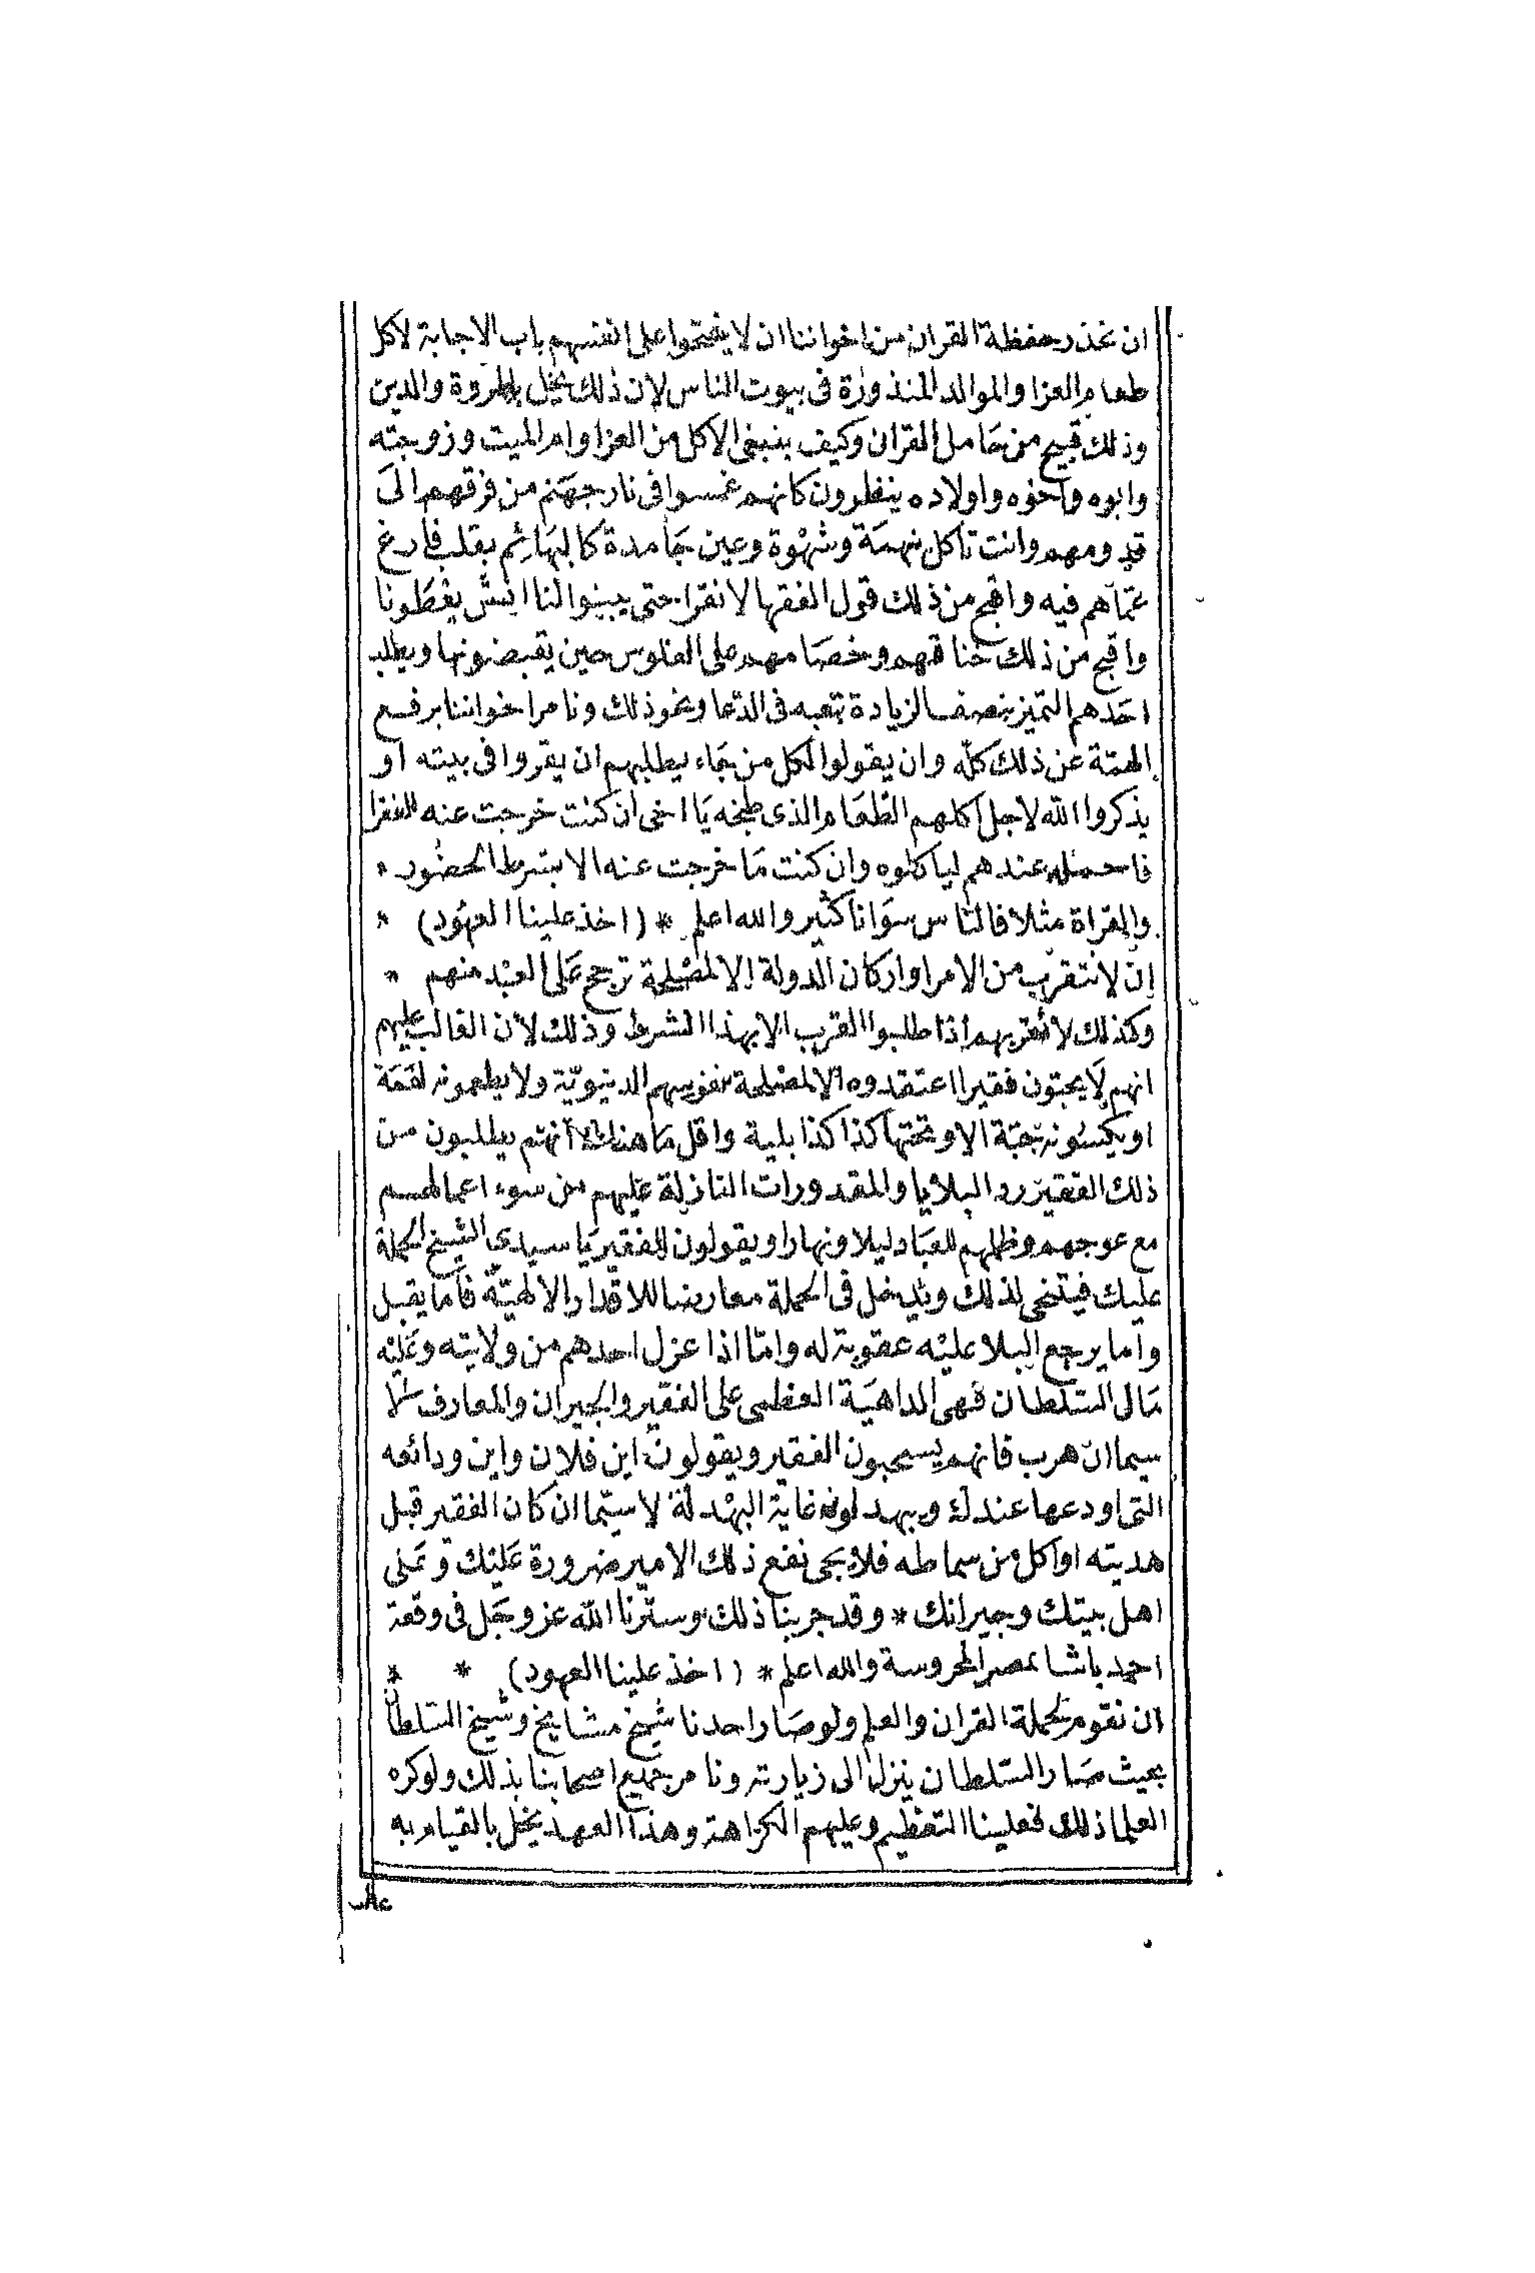 ان نحذر حفظة القران من اخواننا ان لا يفتحوا على انفسهم باب الاجابة لاكل
طعام العزا والموالد المنذورة فى بيوت الناس لان ذلك يخل بالمروة والدين
وذلك قبيح من حَامل القران وكيف ينبغى الاكل من العزا وام الميت وزوجته
وابوه واخوه واولاده ينظرون كانهم غمسوا فى نار جهَنم من فرقهم الىَ
قدومهم وانت تاكل بنهمَة وشهْوة وعين جَامدة كالبهَائم بقلب فارغ
عمّاهم فيه واقبح من ذلك قول الفقها لا نقرا حتى يبينوا لنا ايشّ يعْطَونا
واقبح من ذلك خناقهم وخصَامهم على الفلوس حين يقبضونها ويطلب
احَدهم التميز بنصف لزيادة تعبه فى الدّعا ونحو ذلك ونامر اخواننا برفع
الهمّة عن ذلك كلّه وان يقولوا لكل من جَاء يطلبهم ان يقروا فى بيته او
يذكروا الله لاجل اكلهم الطّعَام الذى طبخه يَا اخى ان كنت خرجت عنه للفقرا
فاحمله عندهم لياكلوه وان كنت مَا خرجت عنه الا بشرط الحضُور *
والقراة مثلا فالنّاس سوَانا كثير والله اعلم * (اخذ علينا العهُود) *
ان لا نتقرّب من الامرا واركان الدولة الا لمصْلحة ترجح عَلى البعْد منهم *
وكذلك لا نُقربهم اذا طلبوا القرب الا بهذا الشرط وذلك لأن الغالب عليهم
انهم لَا يحبّون فقيرا اعتقدوه الا لمصْلحة نفوسهم الدنيويّة ولا يطعمونه لقمَة
او يكسُونه جُبّة الا وتحتها كذا كذا بلية واقل مَا هناك انهم يطلبون من
ذلك الفقير رد البلايا والمقدورات النازلة عَليهم من سوء اعمالهم
مع عوجهم وظلمهم للعبَاد ليلا ونهارا ويقولون للفقير يَا سيدى الشيخ الحملة
عليك فينتخى لذلك ويدخل فى الحملة معارضا للاقدار الالهيّة فاما يقبل
واما يرجع البلا عليْه عقوبة له وامّا اذا عزل احدهم من ولايته وعَليْه
مَال السّلطان فهى الداهيَة العظمى على الفقير والجيران والمعارف لا
سيما ان هرب فانهم يسحبون الفقير ويقولون اين فلان واين ودائعه
التى اودعها عندك ويبهدلونه غاية البهْدلة لا سيّما ان كان الفقير قبل
هديته او اكل من سماطه فلا يجى نفع ذلك الامير ضرورة عَليْك وعَلى
اهل بيتك وجيرانك * وقد جربنا ذلك وسترنا الله عز وجَل فى وقعة
احمد باشا بمصر المحروسة والله اعلم * (اخذ علينا العهود) * *
ان نقوم لحملة القران والعلم ولو صَار احدنا شيخ مشايخ وشيخ السّلطان
بحيث صَار السّلطان ينزل الى زيارته ونامر جميع اصحابنا بذلك ولو كره
العلما ذلك فعلينا التعظيم وعليهم الكراهة وهذا العهد يخل بالقيام به